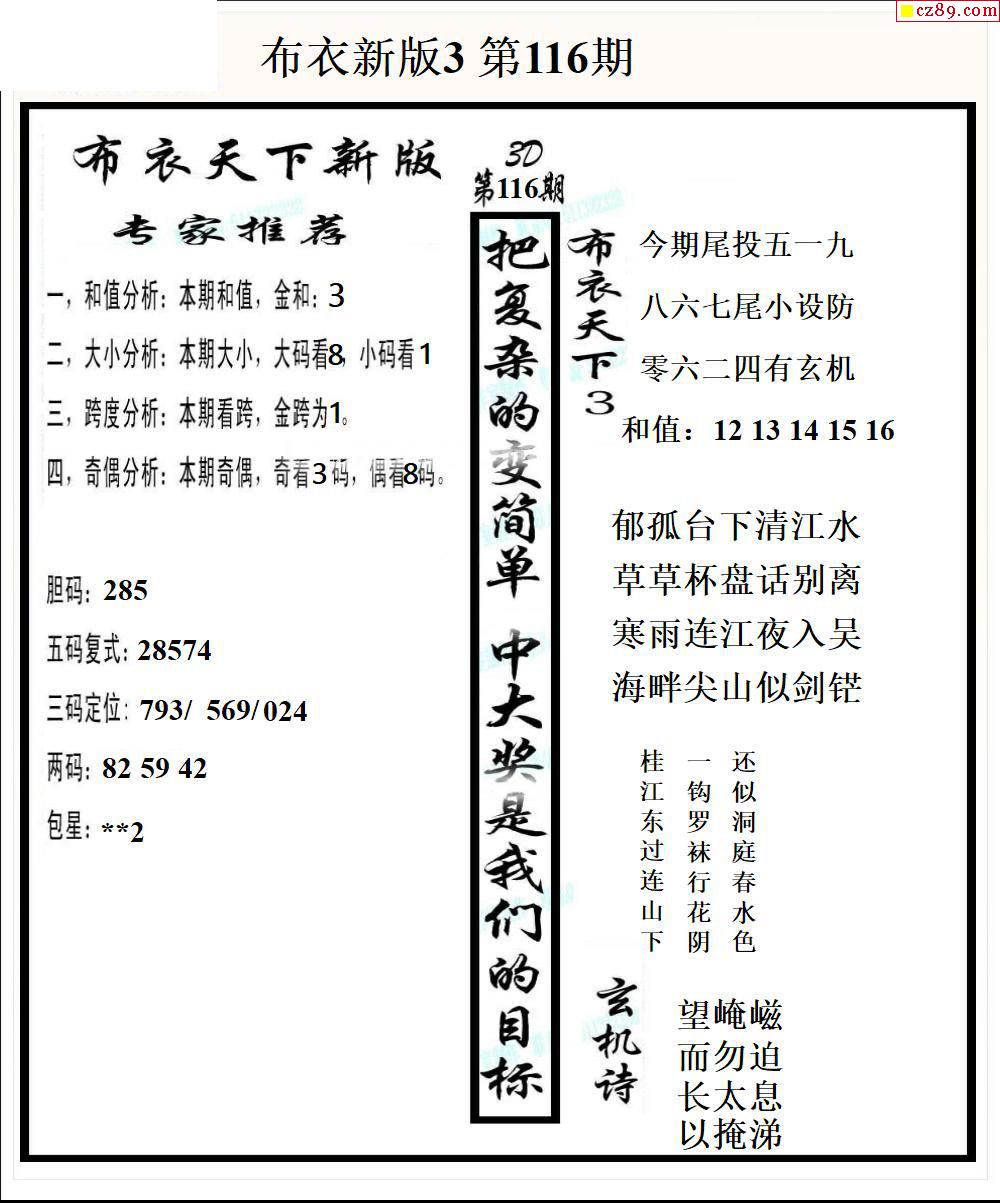 cz89.com
布衣新版3 第116期
布衣天下新版
专家推荐
一，和值分析：本期和值，金和：3
二，大小分析：本期大小，大码看8，小码看1
三，跨度分析：本期看跨，金跨为1。
四，奇偶分析：本期奇偶，奇看3码，偶看8码。
胆码：285
五码复式：28574
三码定位：793/ 569/024
两码：82 59 42
包星：**2
3D
第116期
把复杂的变简单 中大奖是我们的目标
布衣天下3
今期尾投五一九
八六七尾小设防
零六二四有玄机
和值：12 13 14 15 16
郁孤台下清江水
草草杯盘话别离
寒雨连江夜入吴
海畔尖山似剑铓
还似洞庭春水色
一钩罗袜行花阴
桂江东过连山下
玄机诗
望崦嵫
而勿迫
长太息
以掩涕